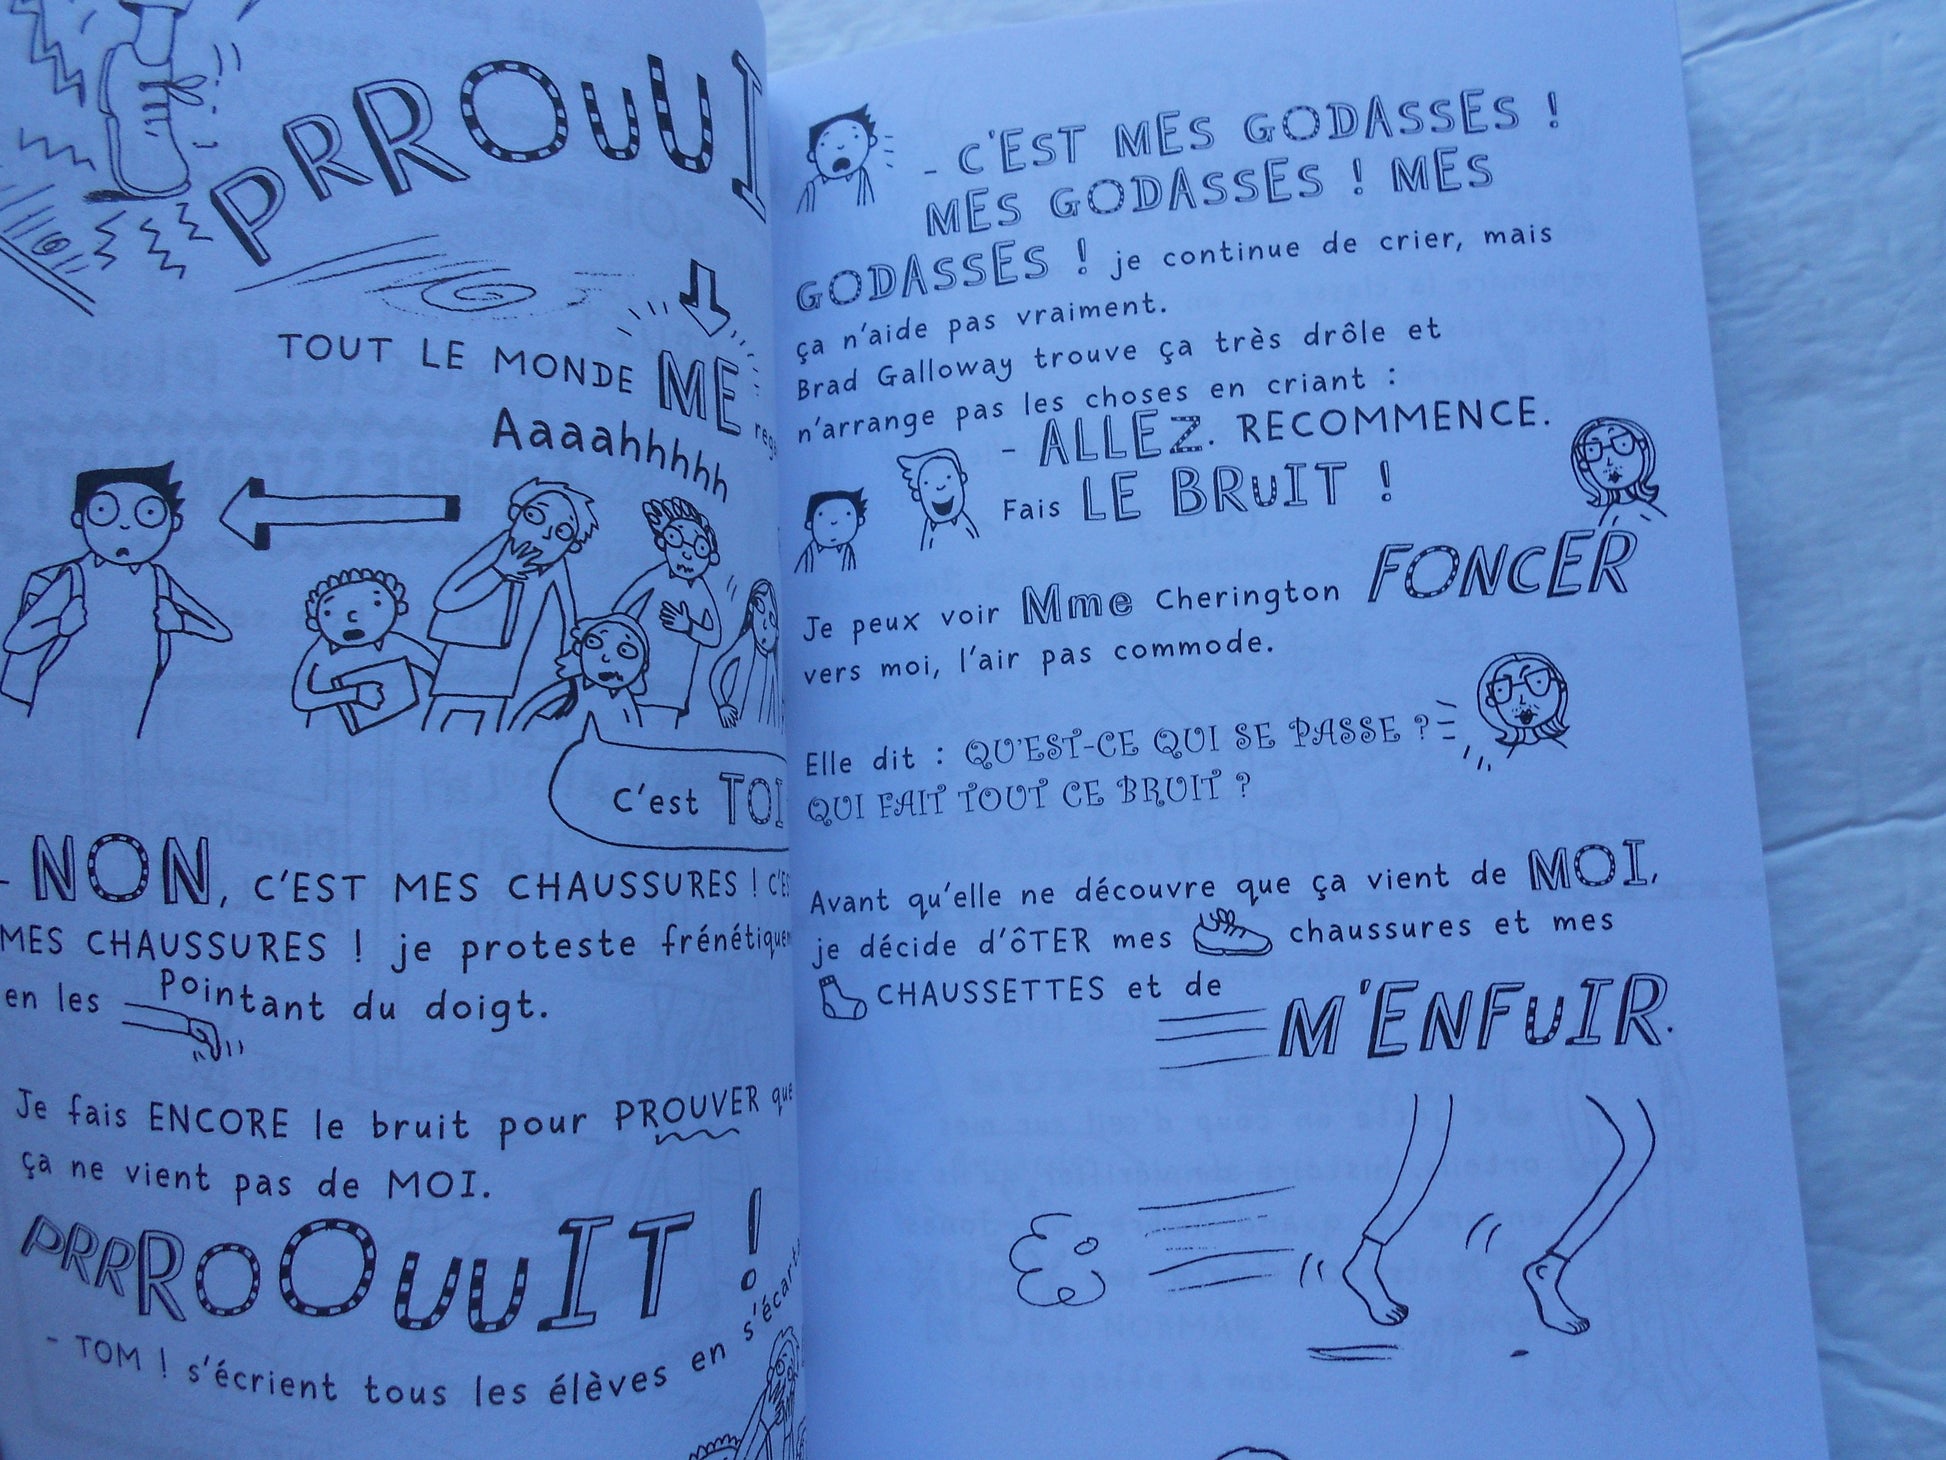 PRROUUI
TOUT LE MONDE ME
Aaaahhhhh
C'est TOI
- NON, C'EST MES CHAUSSURES !
MES CHAUSSURES ! je proteste
en les Pointant du doigt.
Je fais ENCORE le bruit pour PROUVER que
ça ne vient pas de MOI.
PRRROOUUIT !
- TOM ! s'écrient tous les élèves en
- C'EST MES GODASSES !
MES GODASSES ! MES
GODASSES ! je continue de crier, mais
ça n'aide pas vraiment.
Brad Galloway trouve ça très drôle et
n'arrange pas les choses en criant :
- ALLEZ. RECOMMENCE.
Fais LE BRUIT !
Je peux voir Mme Cherington FONCER
vers moi, l'air pas commode.
Elle dit : QU'EST-CE QUI SE PASSE ?
QUI FAIT TOUT CE BRUIT ?
Avant qu'elle ne découvre que ça vient de MOI,
je décide d'ôTER mes chaussures et mes
CHAUSSETTES et de
M'ENFUIR.